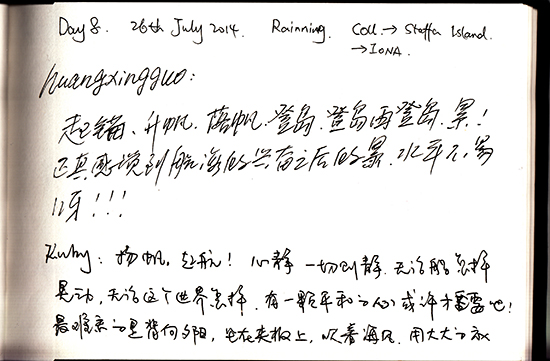 Day 8. 26th July 2014. Rainning. Coll → Staffa Island.
→ IONA.
huangxingguo:
起锚、升帆、落帆、登岛、登岛再登岛、累!
还真感觉到航海的兴奋之后的累,水手不易
呀!!!
Ruby: 扬帆,起航! 心静一切则静,无论船怎样
晃动,无论这个世界怎样,有一颗平和的心或许才重要吧!
最难忘的是背向夕阳,坐在夹板上,吹着海风,用大大的